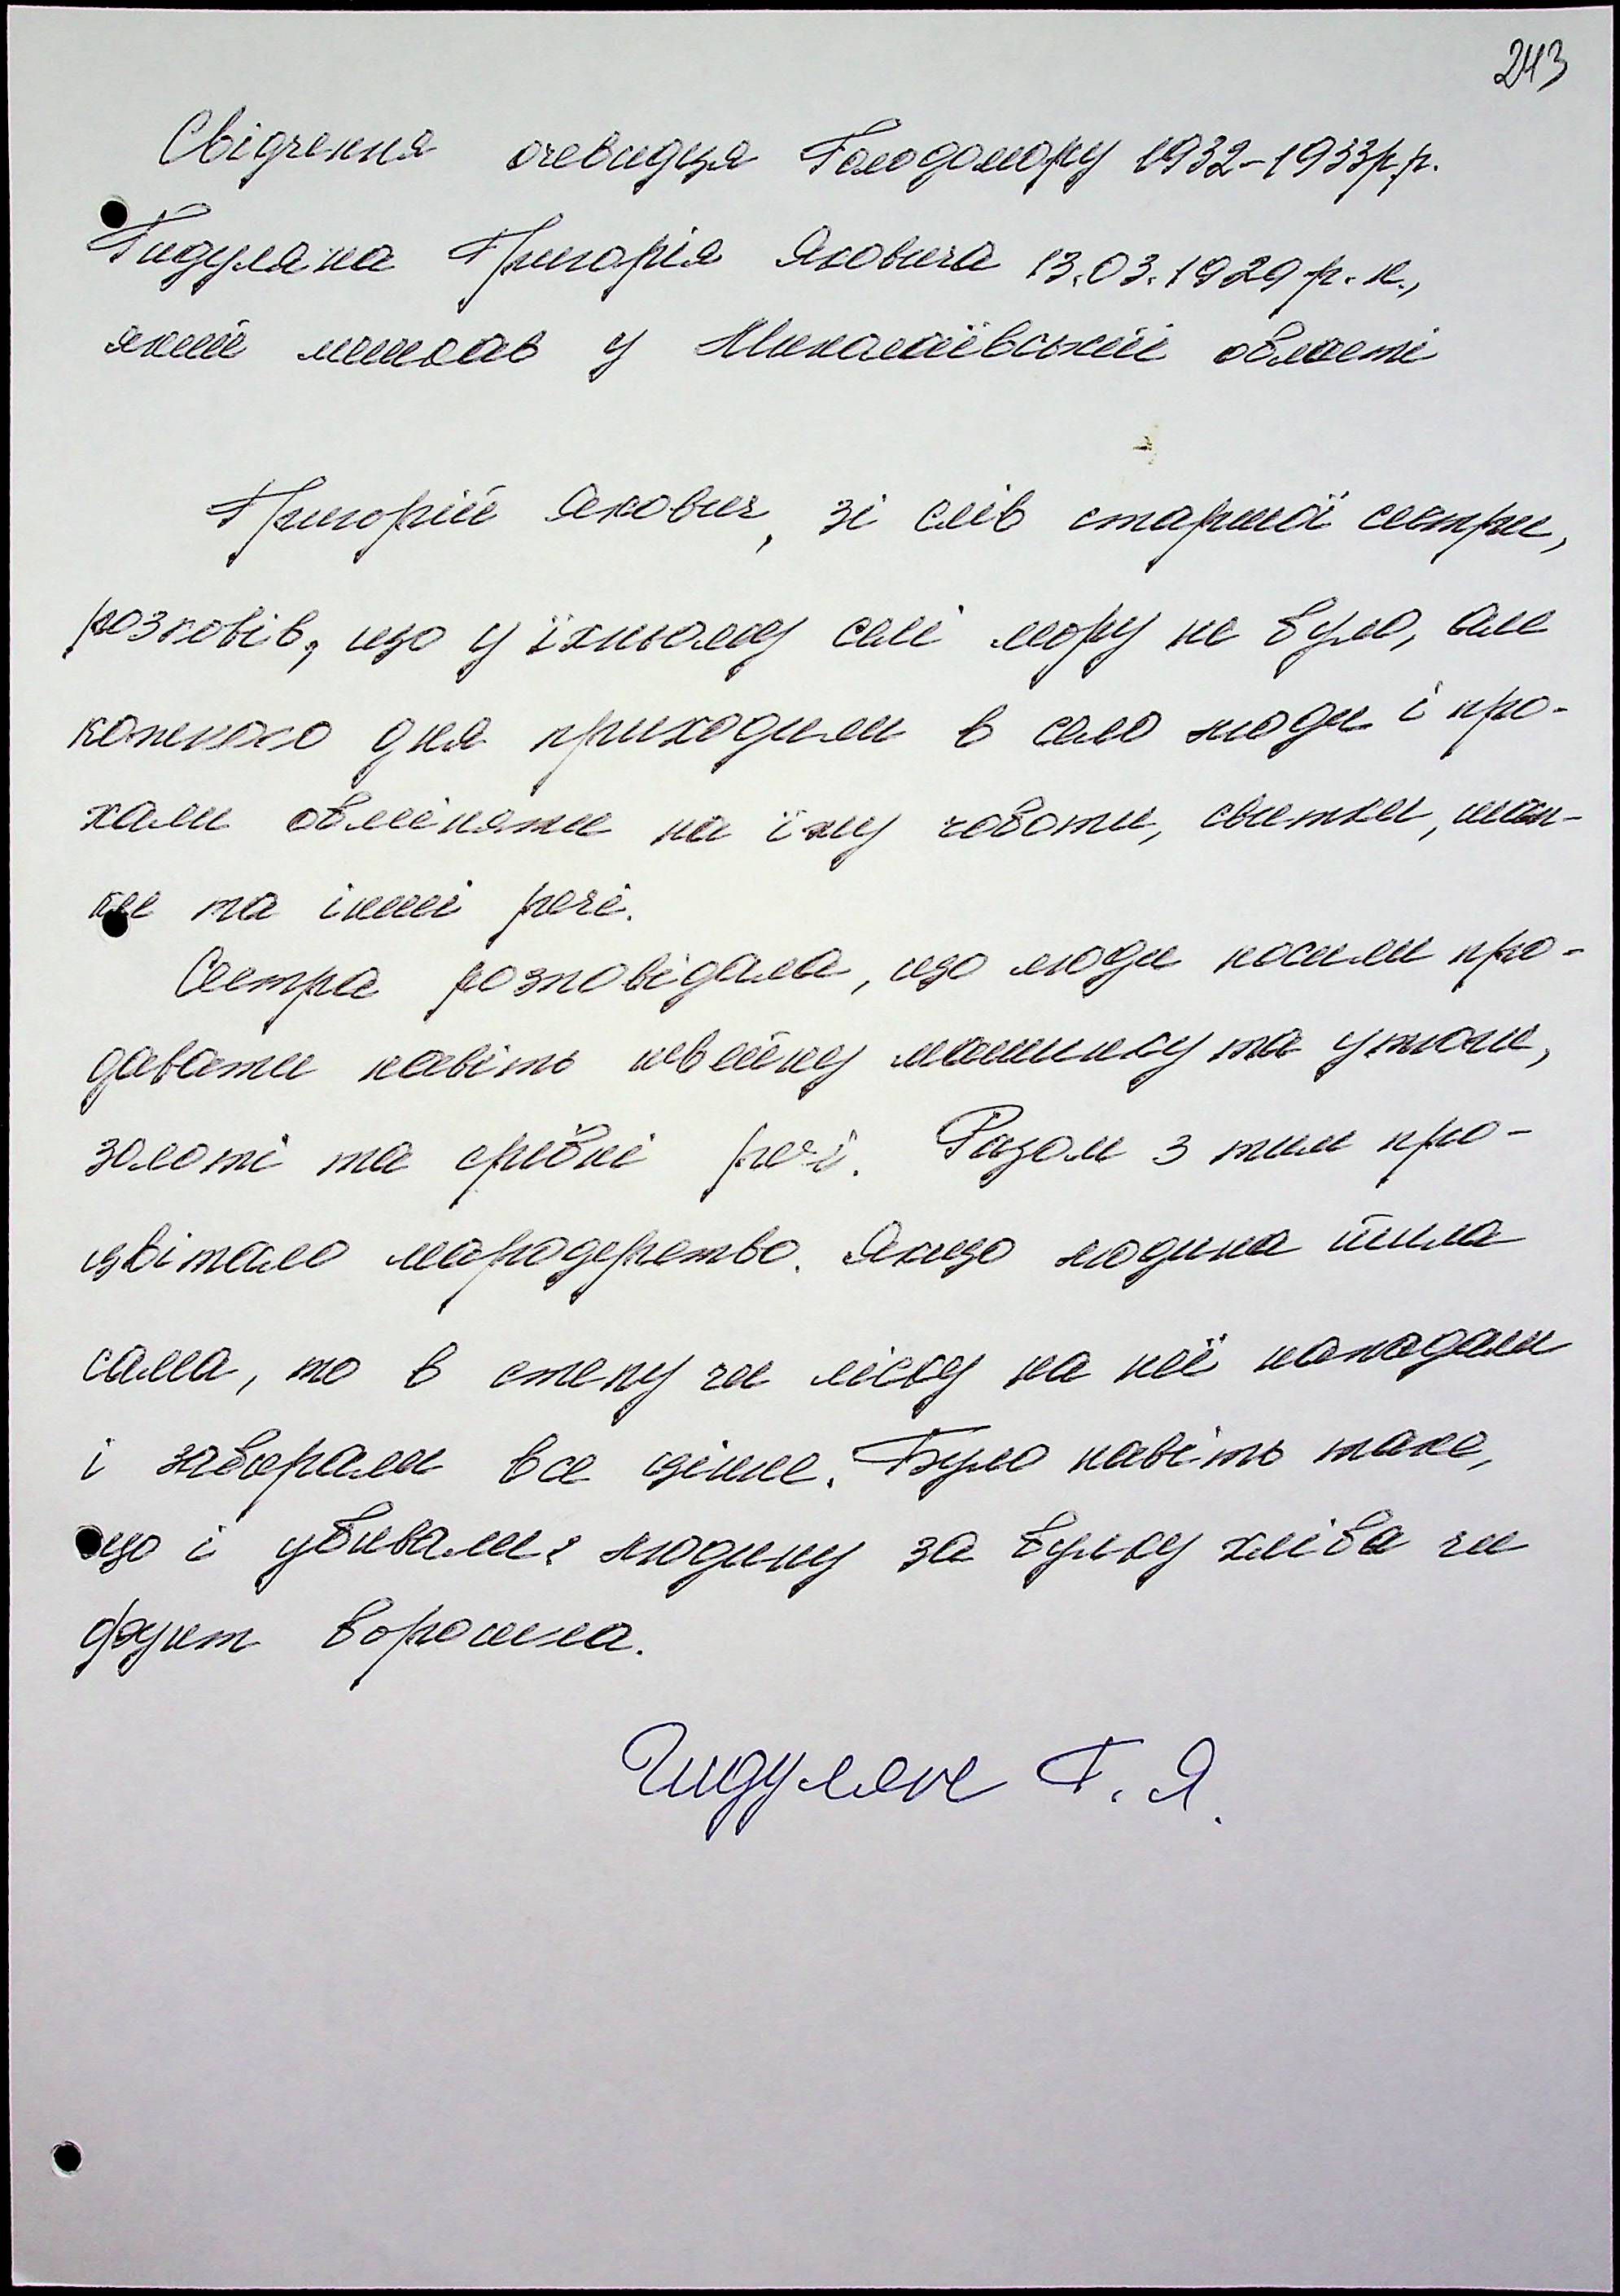 243
Свідчення очевидця Голодомору 1932-1933р.р.
Гидуляна Григорія Яковича 13.03.1929 р.н.,
який мешкав у Миколаївській області
Григорій Якович, зі слів старшої сестри,
розповів, що у їхньому селі мору не було, але
кожного дня приходили в село люди і про-
хали обміняти на їжу чоботи, свитки, шап-
ки та інші речі.
Сестра розповідала, що люди носили про-
давати навіть швейну машинку та утюги,
золоті та срібні речі. Разом з тим про-
цвітало мародерство. Якщо людина йшла
сама, то в степу чи ліску на неї нападали
і забирали все цінне. Було навіть таке,
що і убивали людину за булку хліба чи
фунт борошна.
Гидулян Г. Я.